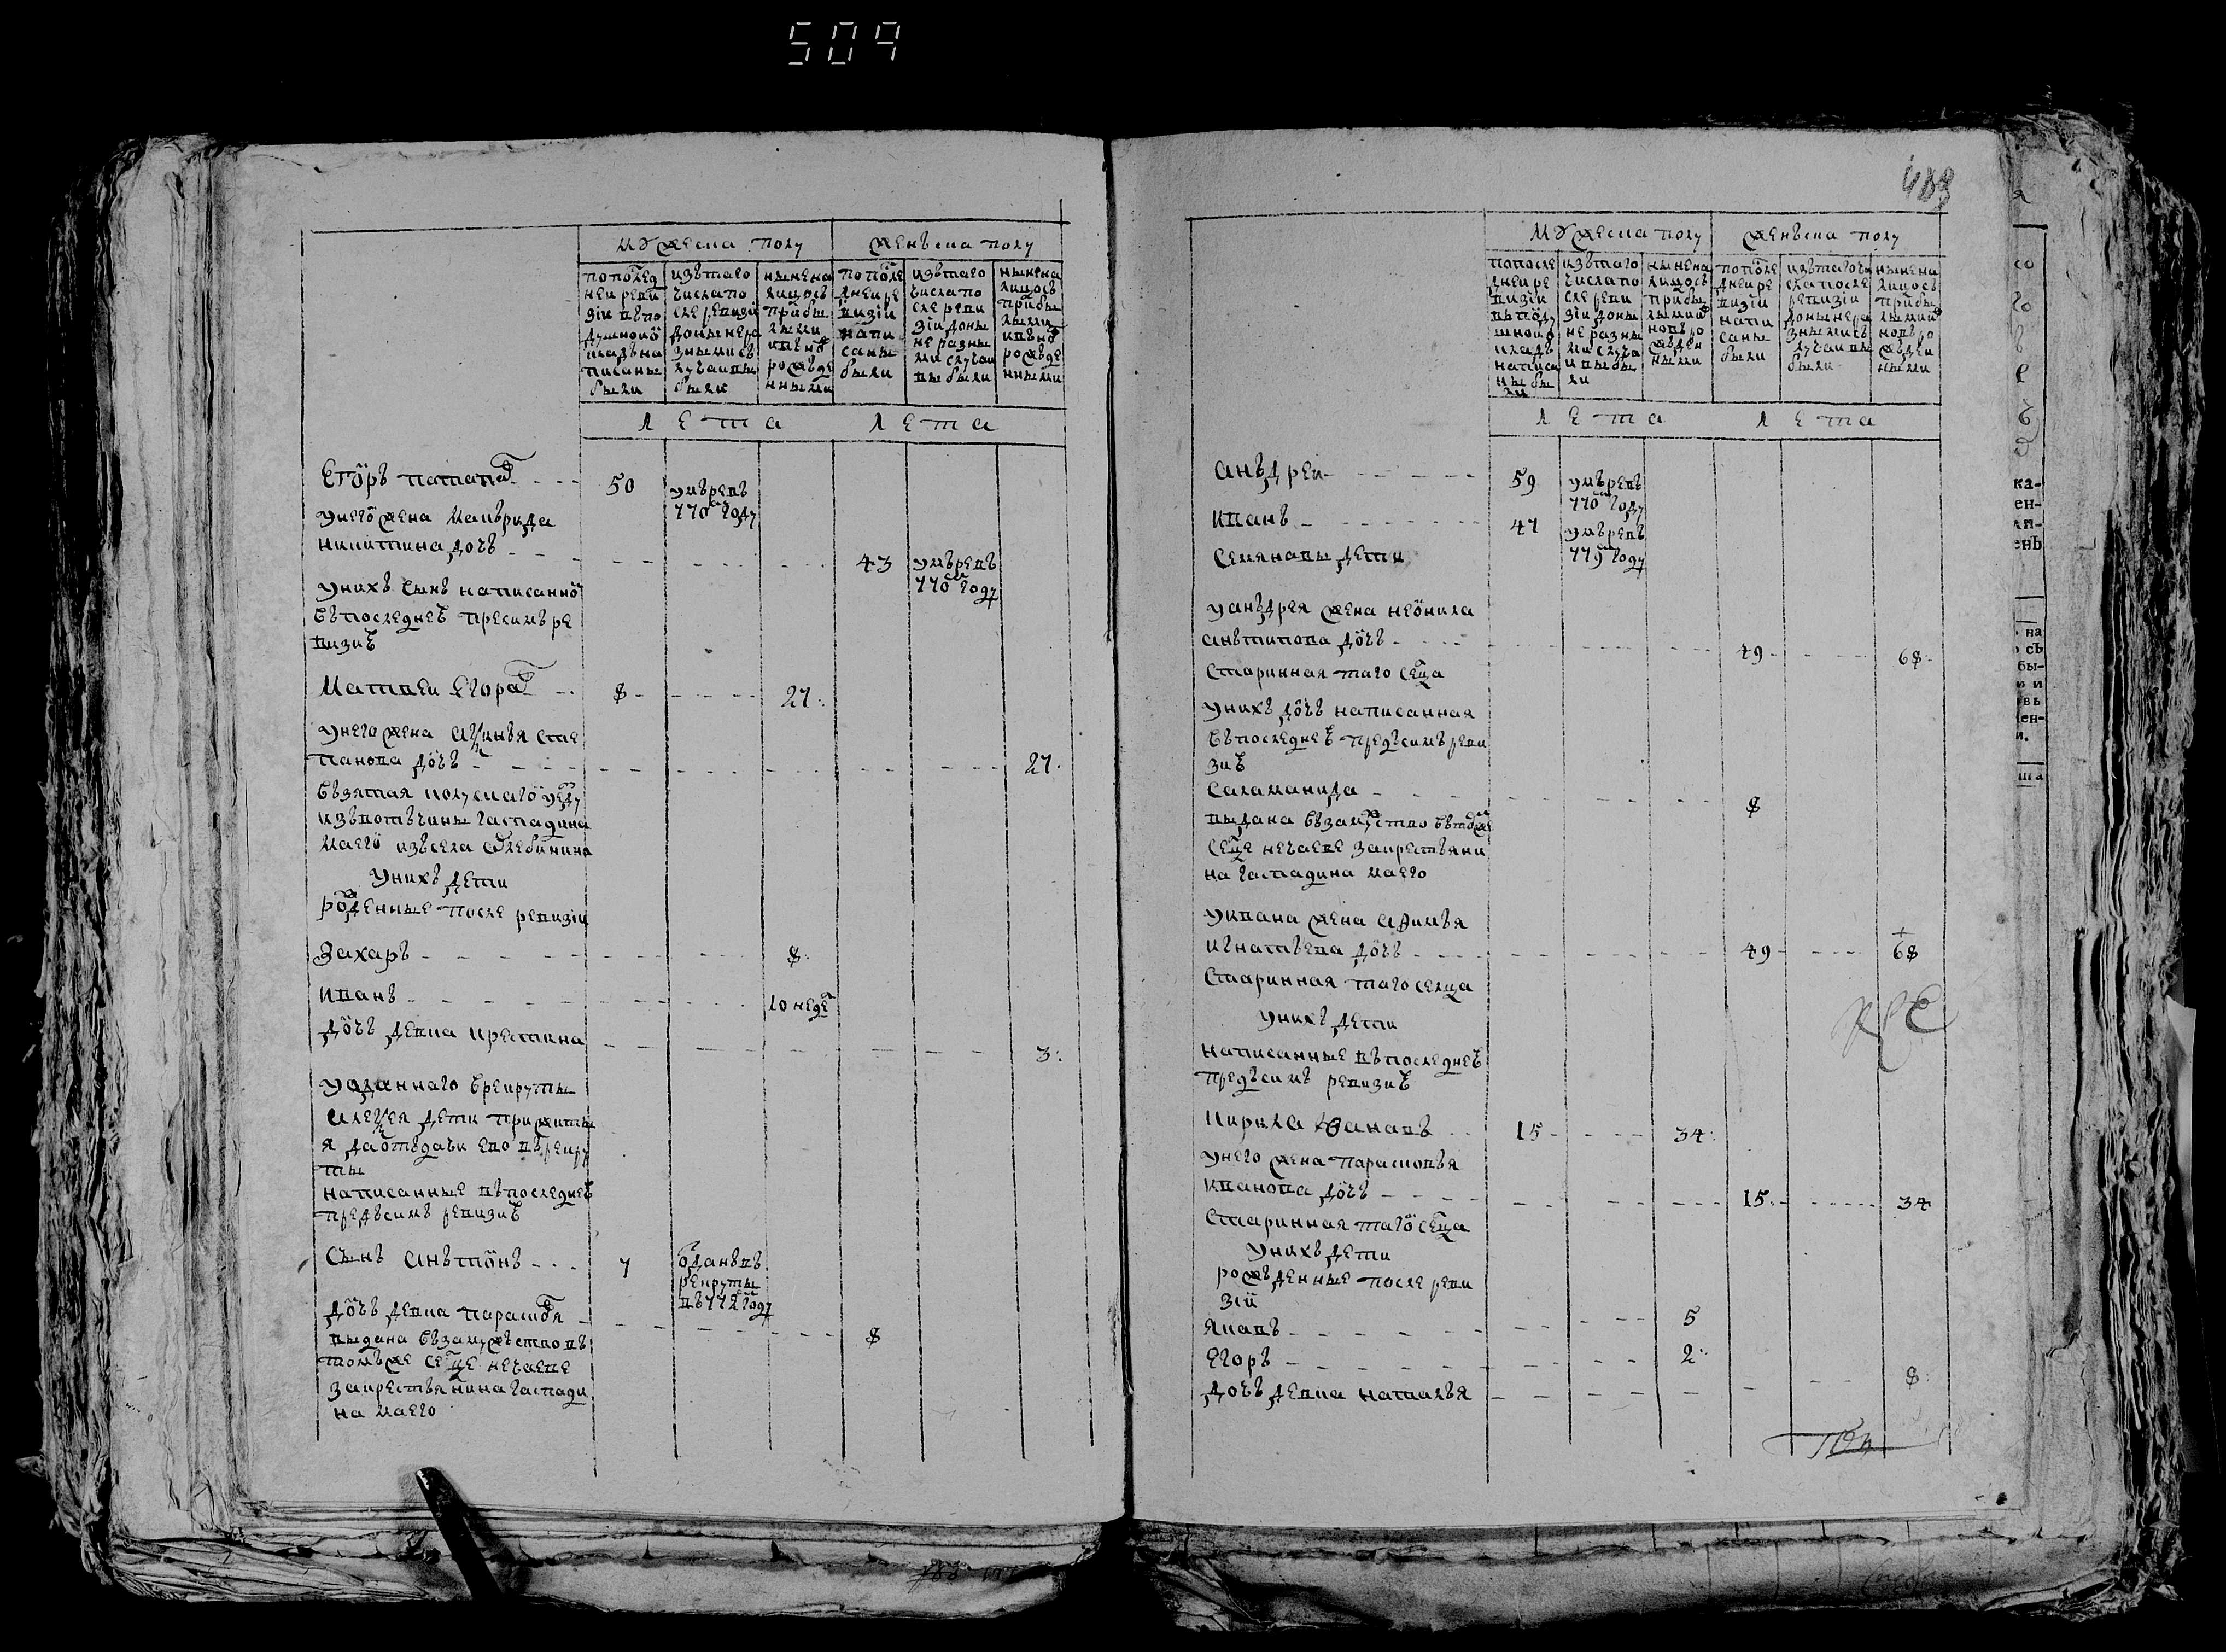 509
483
мужеска полу женъска полу
попослед неи реви зіи въпо душнои о кладъ на писаны были
изътаго числа по сле ревизи доныне ра зными съ лучаи вы были
ныне на лицосъ прибы лыми ивъно рожъде нными
попосле днеи ре визіи напи саны были
изътаго числа по сле реви зіи доны не разны ми случаи вы были
ныне на лицосъ прибы лыми ивъно рожъде нными
лета лета
Егоръ потапов 50 умъревъ
770м году
унего жена Мавърида
никитина дочъ 43 умъревъ
770м году
унихъ сынъ написанно
въпоследнеѣ пресимъ ре
визиѣ
Матвеи Егоров 8 27
унего жена Аѯинъя сте
панова дочъ 27
възятая
изъвотъчины гаспадина
маего изъсела Глебинина
унихъ дети
роденные после ревизіи
Захаръ 8
Иванъ 10 неде
дочъ девка крестина 3
уоданнаго врекруты
Алеѯея дети прижиты
я даотъдачи ево въреку
ты
написанные въпоследнеѣ
предъсимъ ревизиѣ
Сынъ анътонъ 7 оданъвъ
рекруты
въ772м году
дочъ девка парасковя 8
выдана възамужъство въ
томъже селце нечаеве
закрестъянина гаспади
на маего
мужеска полу женъска полу
попосле днеи ре визіи въподу шнои о кладъ написа ны бы ли
изътаго числа по сле реви зіи доны не разны ми случа и вы бы ли
ныне на лицосъ прибы лыми и новъ ро жъден ными
попосле днеи ре визіи напи саны были
изътаго чи сла после ревизіи доныне ра зными съ лучаи вы были
ныне на лицосъ прибы лыми и новъ ро жъден ными
лета лета
анъдреи 59 умъревъ
770м году
Иванъ 47 умъревъ
779м году
Семяновы дети
уанъдрея жена неонила
анътипова дочъ 49 68
старинная таго селца
унихъ дочъ написанная
въпоследнеѣ предъсимъ реви
зиѣ
саламанида 8
выдана възамуство въ томже
селце нечаеве закрестъяни
на гаспадина маего
уивана жена афимъя
игнатъева дочъ 49 68
старинная таго селца
унихъ дети
написанные въпоследнеѣ
предъсимъ ревизиѣ
Кирила Ванавъ 15 34
унего жена парасковъя
иванова дочъ 15 34
старинная таго селца
унихъ дети
рожъденные после реви
зіи
Якавъ 5
Егоръ 2
дочъ девка наталъя 8